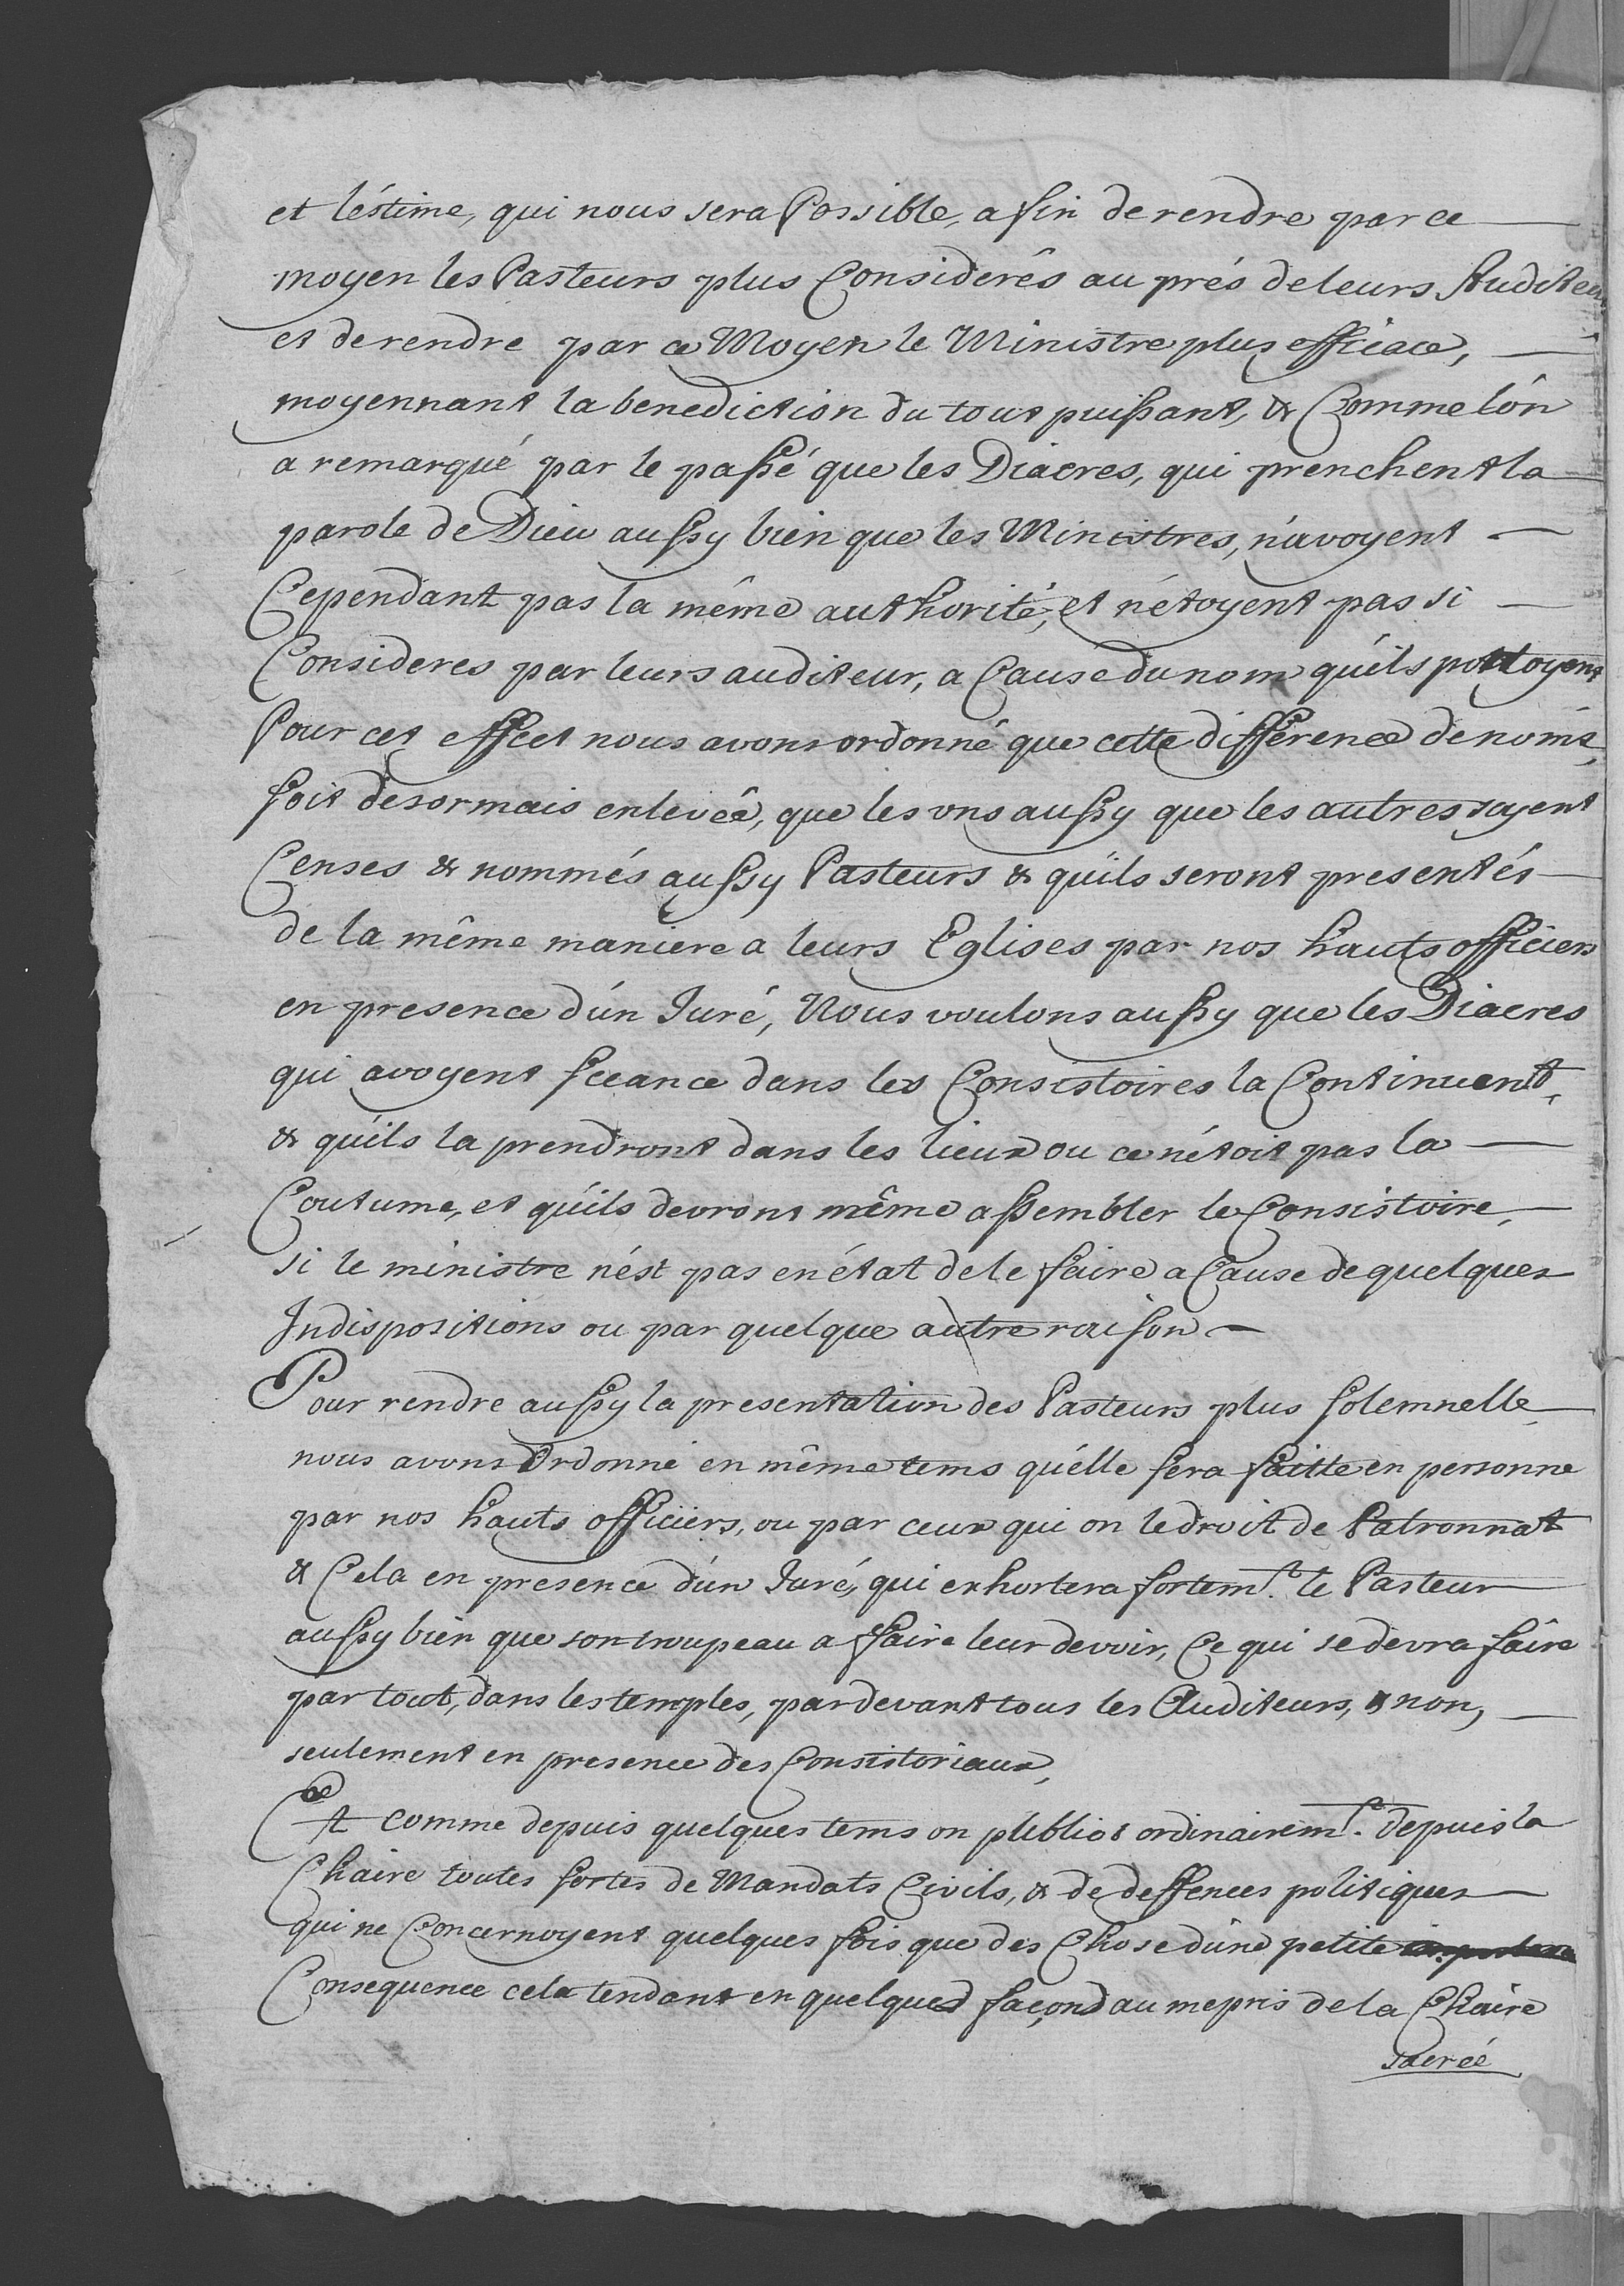 et léstime, qui nous sera Possible, a fin de rendre par ce
moyen les Pasteurs plus Considerés au prés de leurs Auditeu
et de rendre par ce Moyen le Ministre plus efficace,
moyennant la benediction du tout puissant, & Comme lón
a remarqué par le passé que les Diacres, qui prenchent la
parole de Dieu aussy bien que les Ministres, návoyent
Cependant pas la même authorité, et nétoyent pas si
Consideres par leurs auditeur, a Cause du nom quíls portoyent
Pour cet effect nous avons ordonné que cette différence de noms,
soit desormais enlevée, que les vns aussy que les autres soyent
Censes & nommés aussy Pasteurs & quíls seront presentés
de la même maniere a leurs Eglises par nos hauts officiers
en presence dún Juré, Nous voulons aussy que les Diacres
qui avoyent sceance dans les Consistoires la Continuent,
& quíls la prendront dans les lieux ou ce nétoit pas la
Coutume, et quíls devront même assembler le Consistoire,
si le ministre nést pas en état de le faire a Cause de quelques
Indispositions ou par quelque autre raison
Pour rendre aussy la presentation des Pasteurs plus solemnelle
nous avons Ordonné en même tems quélle sera faitte en personne
par nos hauts officiers, ou par ceux qui on le droit de Patronnat
& Cela en presence dún Juré, qui exhortera fortemt. le Pasteur
aussy bien que son troupeau a ffaire leur devoir, Ce qui se devra faire
par tout, dans les temples, pardevant tous les Auditeurs, & non,
seulement en presence des Consistoriaux,
Et comme depuis quelques tems on publiot ordinairemt. depuis la
Chaire toutes sortes de Mandats Civils, & de deffences politiques
qui ne Concernoyent quelques fois que des Chose dúne petite
Consequence cela tendant en quelques façons au mepris de la Chaire
sacrée